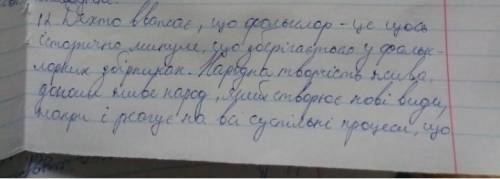 12. Дехто вважає, що фольклор - це щось
історично минуле, що зберігається у фольк-
лорних збірниках. Народна творчість жива,
доки живе народ, який створює нові види,
жанри і реагує на всі суспільні процеси, що